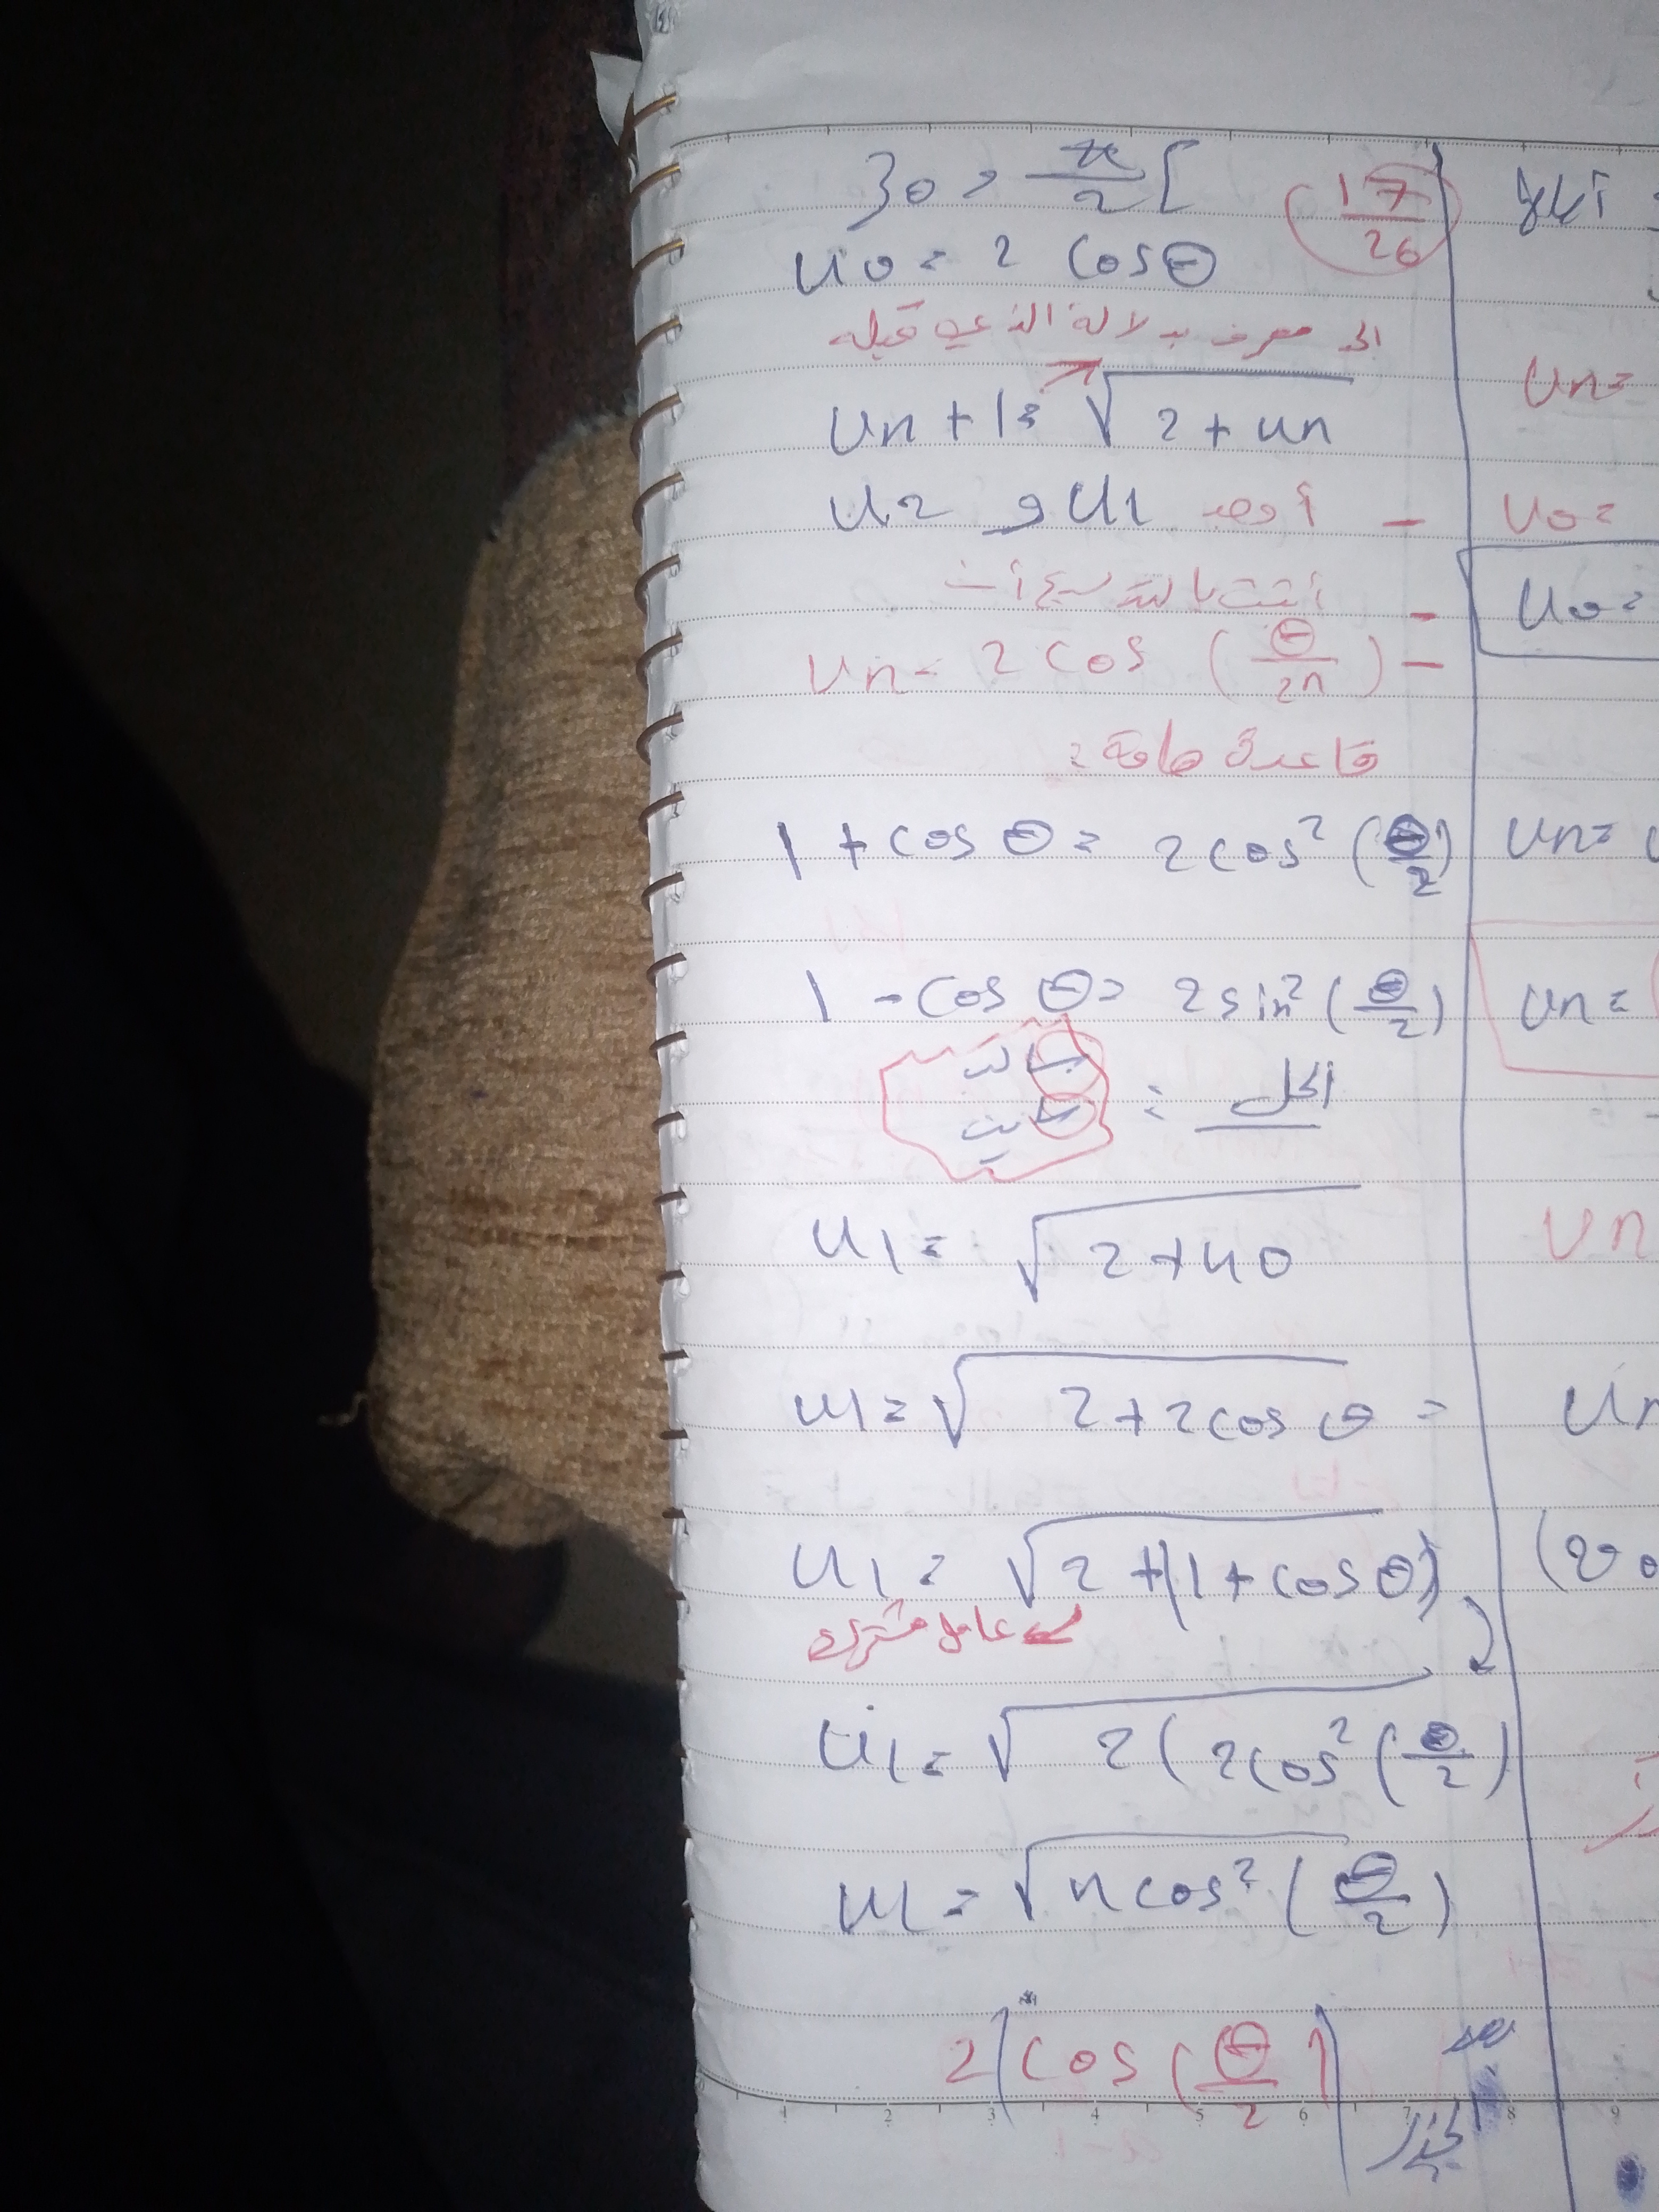 ]0, π/2[
17/26
u0 = 2 cos θ
الحد معرف بدلالة الذي قبله
un+1 = √(2+un)
- أوجد u1 و u2
- أثبت بالتدريج أن
un = 2 cos (θ/2n) -
قاعدة هامة:
1 + cos θ = 2cos² (θ/2)
1 - cos θ = 2 sin² (θ/2)
الحل :
u1 = √(2+u0)
u1 = √(2+2cos θ) =
u1 = √(2+(1+cos θ))
عامل مشترك
u1 = √(2(2cos² (θ/2)
u1 = √(4cos² (θ/2))
2|cos (θ/2)|
un=
u0=
u0=
un=
un=
un
(v0